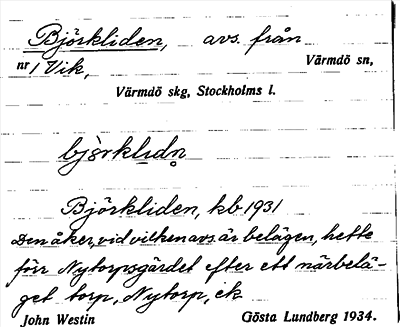 Björkliden, avs. från
nr 1 Vik, Värmdö sn,
Värmdö skg, Stockholms l.
bjö̀rklıdn̥
Björkliden, kb 1931
Den åker, vid vilken avs. är belägen, hette
förr Nytorpsgärdet efter ett närbelä-
get torp, Nytorp, ek
John Westin Gösta Lundberg 1934.